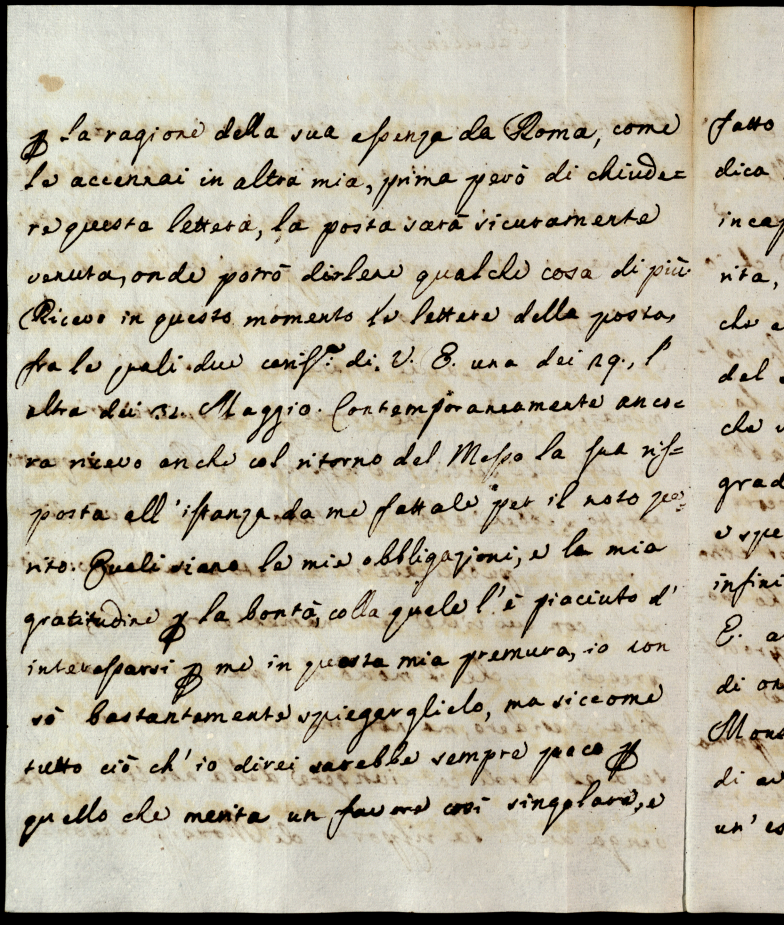 ꝑ la ragione della sua assenza da Roma, come
le accennai in altra mia, prima però di chiude=
re questa lettera, la posta sarà sicuramente
venuta, onde potrò dirlene qualche cosa di più
Ricevo in questo momento le lettere della posta,
fra le quali due di V. E. una dei 29., l'
altra dei 31. Maggio. Contemporaneamente anco=
ra ricevo anche col ritorno del Messo la sua ris=
posta all'istanza da me fattale per il noto pe=
rito. Quali siano le mie obbligazioni, e la mia
gratitudine ꝑ la bontà, colla quale l'è piaciuto d'
interessarsi ꝑ me in questa mia premura, io non
sò bastantemente spiegarglielo, ma siccome
tutto ciò ch'io direi sarebbe sempre poco ꝑ
quello che merita un favore così singolare, e
fatto
dica
incap
rità,
che
del
che
grad
e spe
infini
E.
di
di
un'es